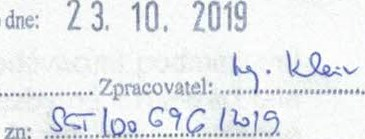 dne: 23. 10. 2019
Zpracovatel: Ing. Klein
zn: SST/00 696/2019